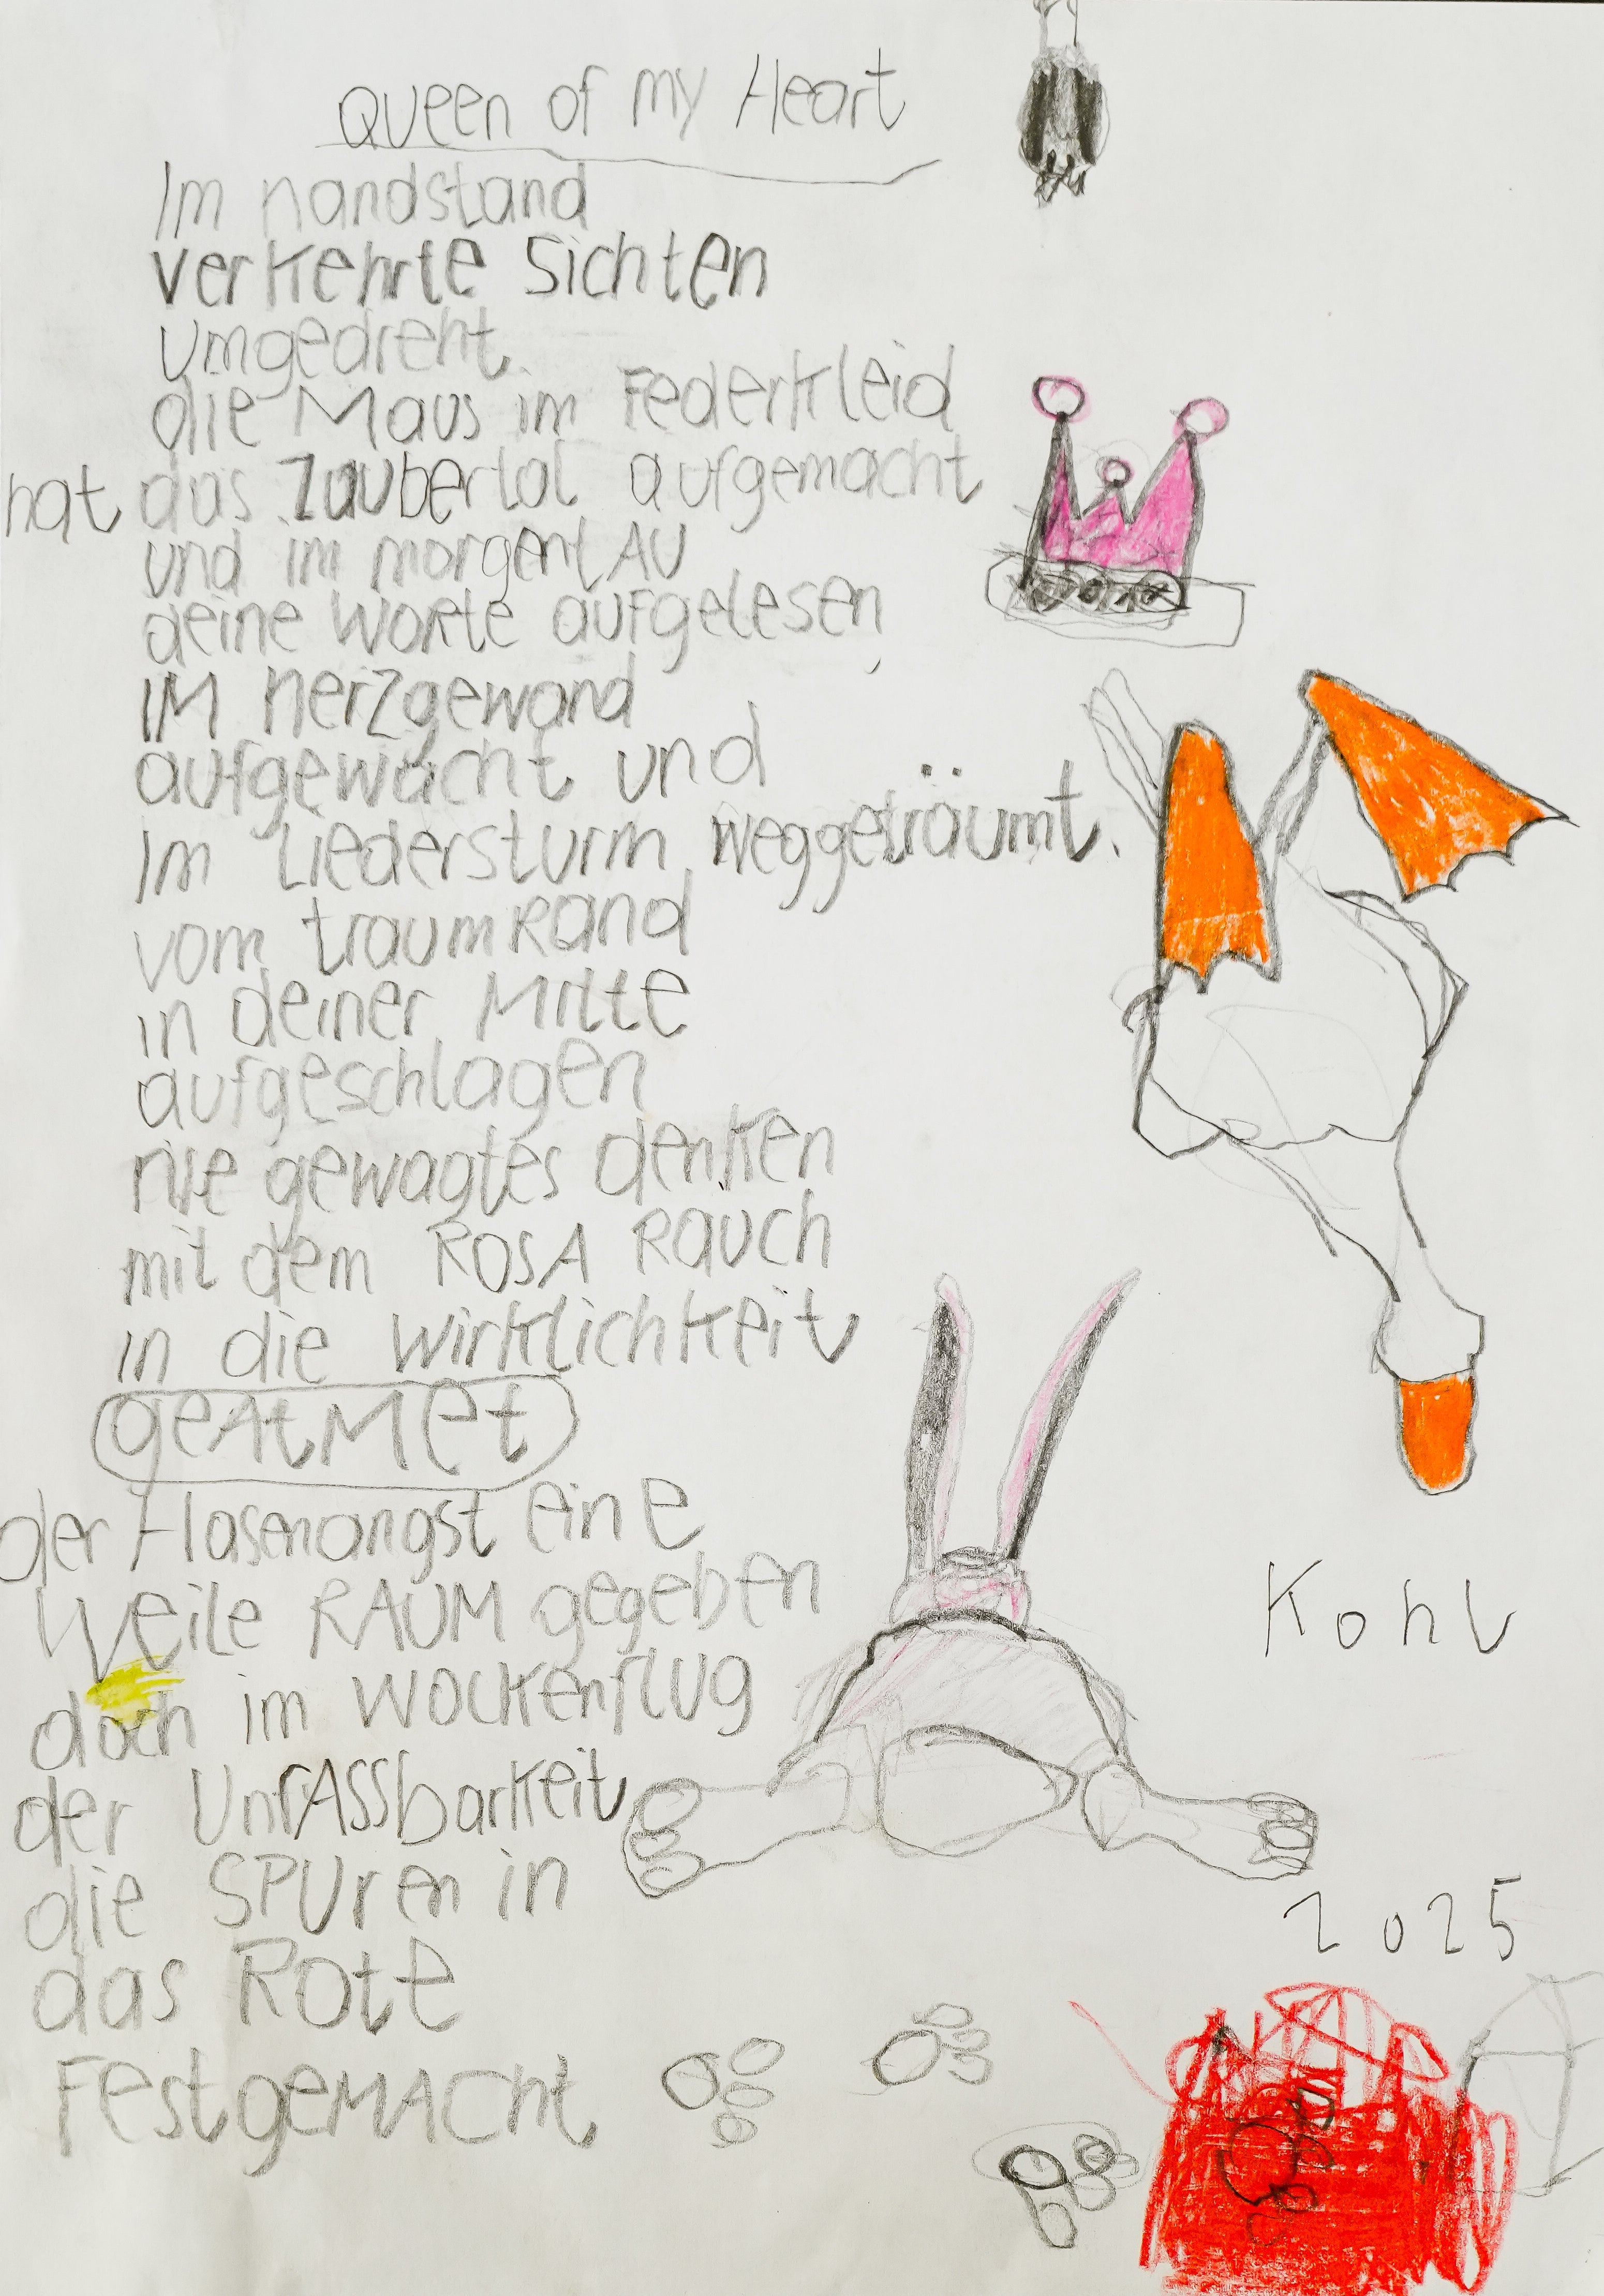 Queen of my Heart
Im Handstand
verkehrte Sichten
umgedreht.
die Maus im Federkleid
hat das Zaubertal aufgemacht
und im morgentAU
deine Worte aufgelesen,
IM Herzgewand
aufgewacht und
Im Liedersturm weggeträumt.
vom traumRand
in deiner Mitte
aufgeschlagen
nie gewagtes denken
mit dem ROSA Rauch
in die Wirklichkeit
geAtMet
der Hasenangst eine
Weile RAUM gegeben
doch im Wolkenflug
der UnfASSbarkeit
die SPUren in
das Rote
FestgeMACht
Kohl
2025